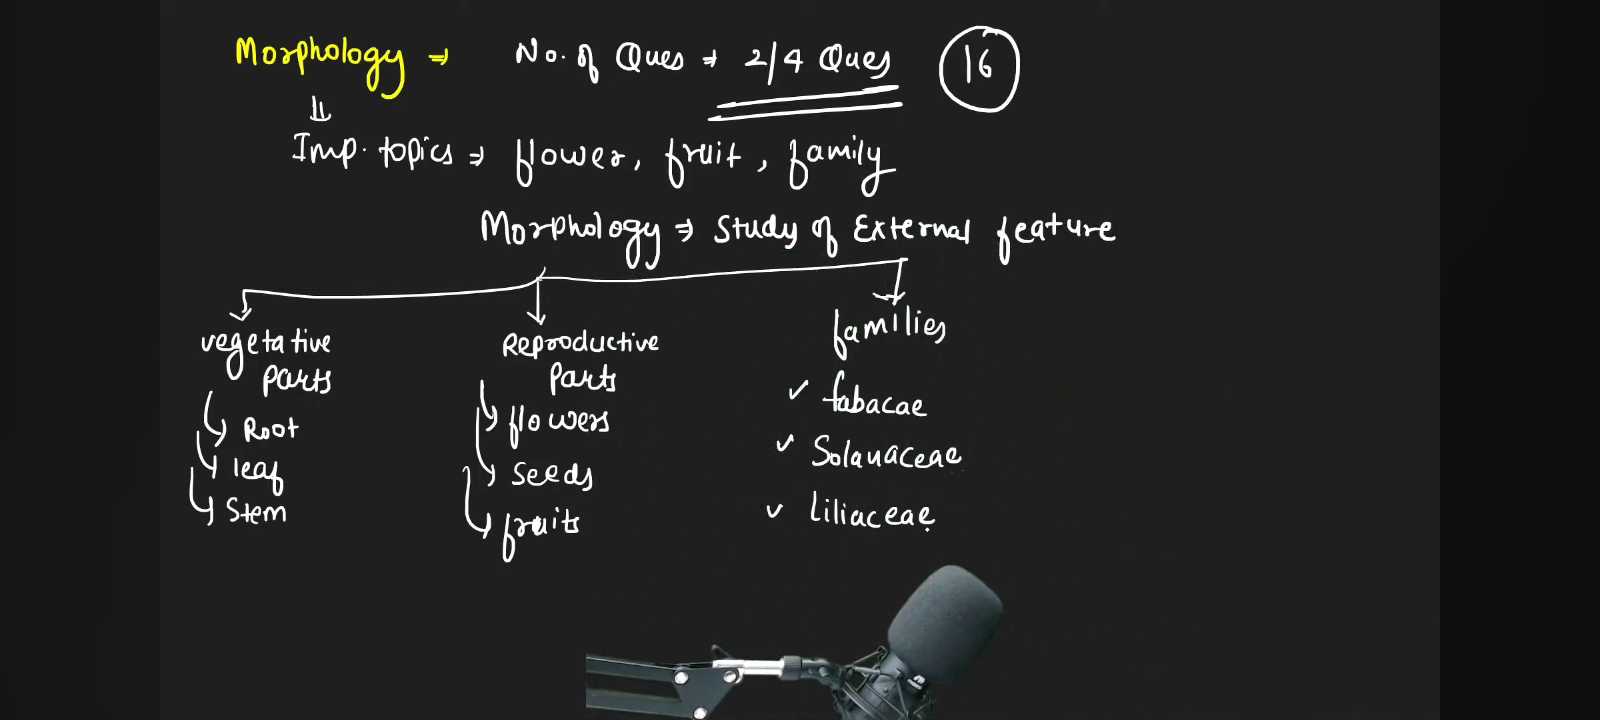 Morphology ⇒ No. of Ques ⇒ 2/4 Ques 16
⇓
Imp. topics ⇒ flower, fruit, family
Morphology ⇒ Study of External feature
vegetative parts
Root
leaf
Stem
Reproductive parts
flowers
Seeds
fruits
families
✓ fabacae
✓ Solanaceae
✓ Liliaceae